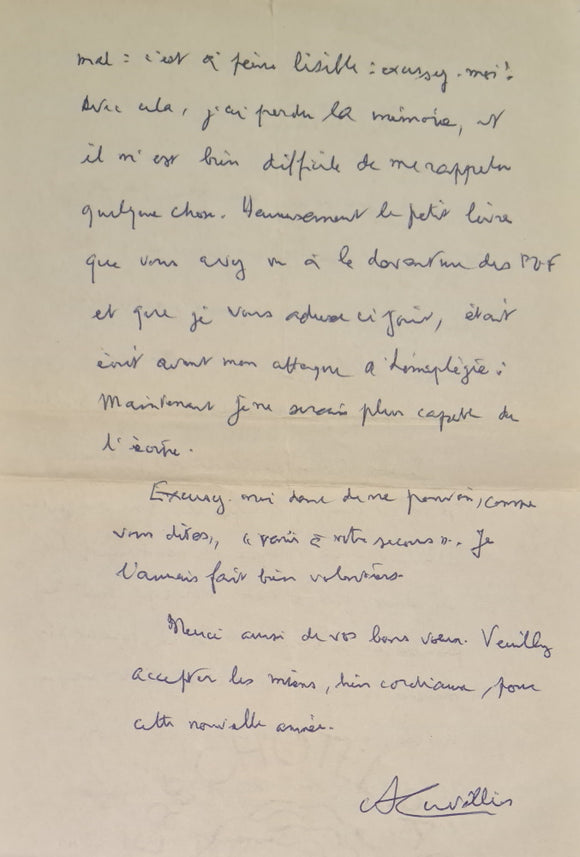 mal : c'est à peine lisible : excusez-moi !
Avec cela, j'ai perdu la mémoire, et
il m'est bien difficile de me rappeler
quelque chose. Heureusement le petit livre
que vous avez vu à la devanture des PUF
et que je vous adresse ci-joint, était
écrit avant mon attaque d'hémiplégie :
Maintenant je ne serais plus capable de
l'écrire.
Excusez-moi donc de ne pouvoir, comme
vous dites, « venir à votre secours ». Je
l'aurais fait bien volontiers.
Merci aussi de vos bons vœux. Veuillez
accepter les miens, bien cordiaux, pour
cette nouvelle année.
A Cuvillier